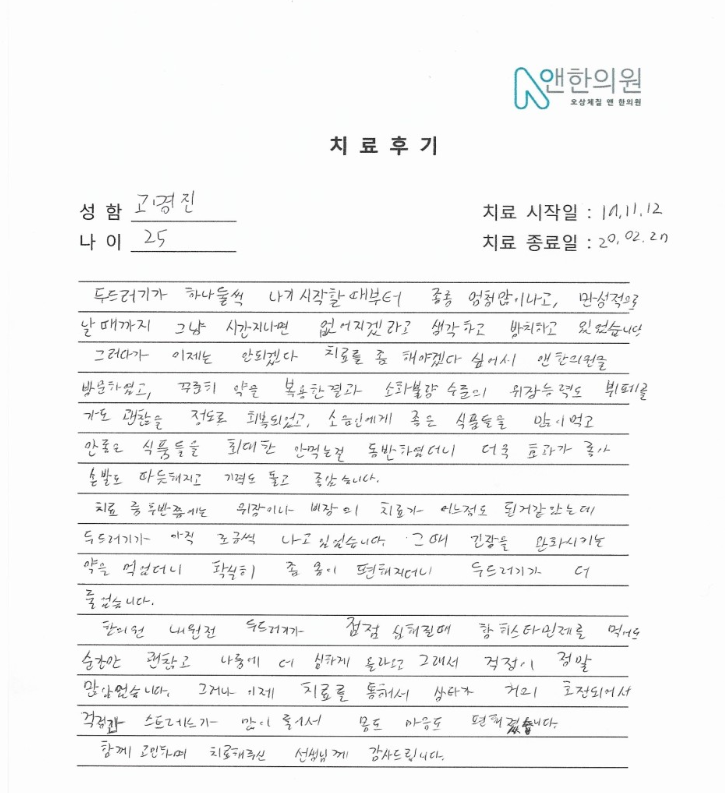 앤한의원
오상체질 앤 한의원
치료후기
성함 고경진
치료 시작일 : 19.11.12
나이 25
치료 종료일 : 20.02.27
두드러기가 하나둘씩 나기 시작할때부터 종종 엄청많이나고, 만성적으로
날때까지 그냥 시간지나면 없어지겠라고 생각하고 방치하고 있었습니다
그러다가 이제는 안되겠다 치료를 좀 해야겠다 싶어서 앤한의원을
방문하였고, 꾸준히 약을 복용한결과 소화불량 수준의 위장능력도 뷔페를
가도 괜찮을 정도로 회복되었고, 소음인에게 좋은 식품들을 많이먹고
안좋은 식품들을 최대한 안먹는걸 동반하였더니 더욱 효과가 좋아
손발도 따듯해지고 기력도 돌고 좋았습니다.
치료 중후반쯤에는 위장이나 비장의 치료가 어느정도 된거같았는데
두드러기가 아직 조금씩 나고있었습니다. 그때 긴장을 완화시키는
약을 먹었더니 확실히 좀 몸이 편해지더니 두드러기가 더
줄었습니다.
한의원 내원전 두드러기가 점점 심해질때 항히스타민제를 먹어도
순간만 괜찮고 나중에 더 심하게 올라오고 그래서 걱정이 정말
많았었습니다. 그러나 이제 치료를 통해서 상태가 거의 호전되어서
걱정과 스트레스가 많이 줄어서 몸도 마음도 편해졌습니다.
함께 고민하며 치료해주신 선생님께 감사드립니다.